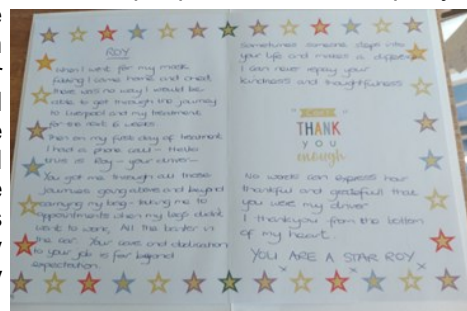 ROY
When I went for my mask
fitting I came home and cried
there was no way I would be
able to get through the journey
to Liverpool and my treatment
for the next 6 weeks
Then on my first day of treatment
I had a phone call - Hello
this is Roy - your driver -
You got me through all those
journeys going above and beyond
carrying my bag - taking me to
appointments when my legs didn't
want to work, All the banter in
the car. Your care and dedication
to your job is far beyond
expectation.
Sometimes someone steps into
your life and makes a difference
I can never repay your
kindness and thoughtfulness
THANK
YOU
enough
No words can express how
thankful and grateful I that
you were my driver
I thankyou from the bottom
of my heart.
YOU ARE A STAR ROY
x x x